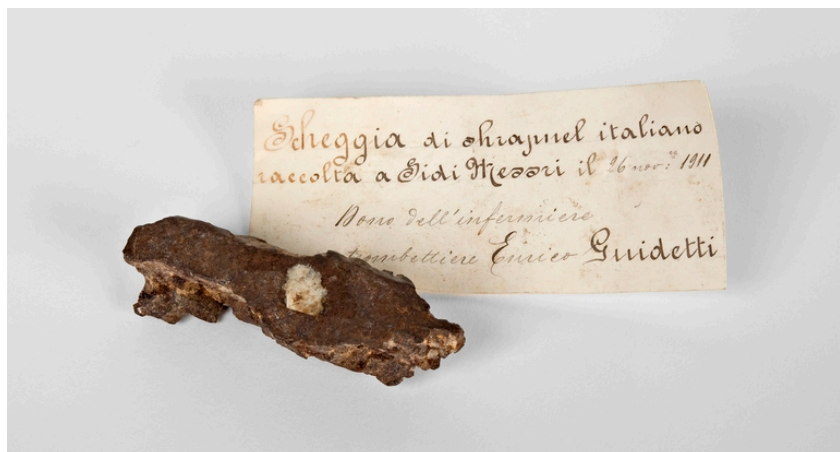 Scheggia di shrapnel italiano
raccolta a Sidi Messri il 26 nov: 1911
Dono dell'infermiere
trombettiere Enrico Guidetti